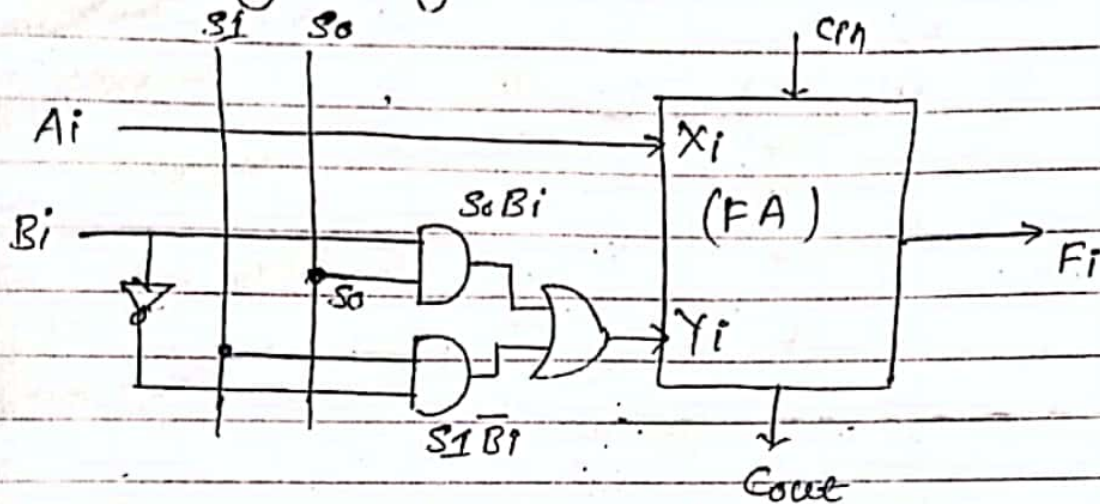 S1 S0
Cin
Ai
Xi
S0Bi
(FA)
Bi
Fi
S0
Yi
S1B̅i
Cout